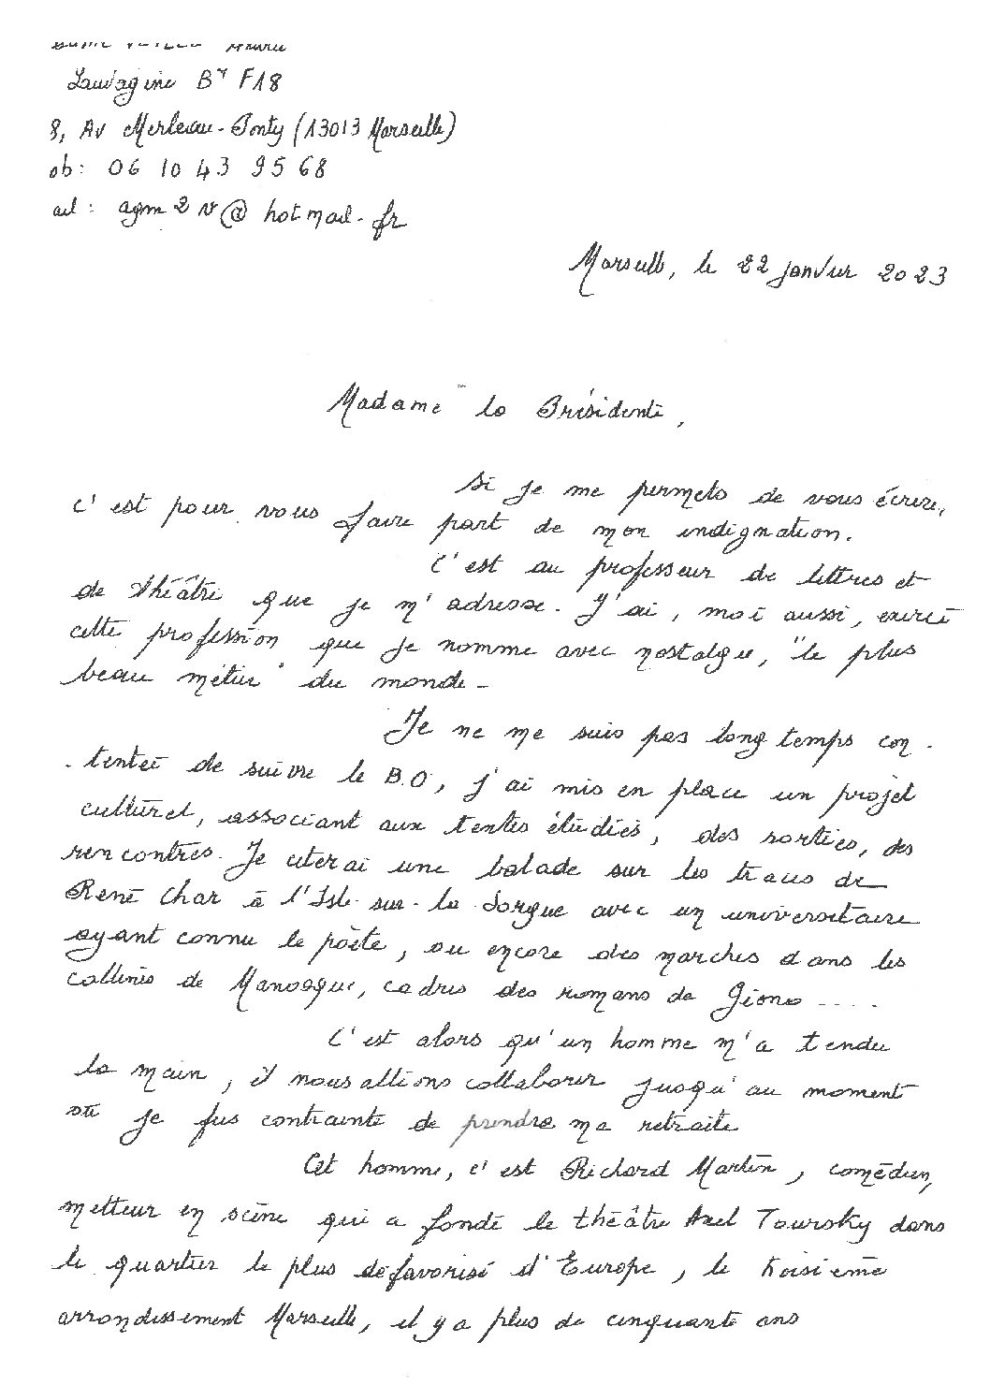 Lauvagine Bt F18
8, Av Merleau-Ponty (13013 Marseille)
ob : 06 10 43 95 68
ail : agm2v@hotmail.fr
Marseille, le 22 janvier 2023
Madame la Présidente,
Si je me permets de vous écrire,
c'est pour vous faire part de mon indignation.
C'est au professeur de lettres et
de théâtre que je m'adresse. J'ai, moi aussi, exercé
cette profession que je nomme avec nostalgie, "le plus
beau métier" du monde -
Je ne me suis pas longtemps con -
- tentée de suivre le B.O, j'ai mis en place un projet
culturel, associant aux textes étudiés, des sorties, des
rencontres. Je citerai une balade sur les traces de
René Char à l'Isle-sur-la Sorgue avec un universitaire
ayant connu le poète, ou encore des marches dans les
collines de Manosque, cadres des romans de Giono ....
C'est alors qu'un homme m'a tendu
la main, il nous allions collaborer jusqu'au moment
où je fus contrainte de prendre ma retraite
Cet homme, c'est Richard Martin, comédien,
metteur en scène qui a fondé le théâtre Axel Toursky dans
le quartier le plus défavorisé d'Europe, le troisième
arrondissement Marseille, il y a plus de cinquante ans